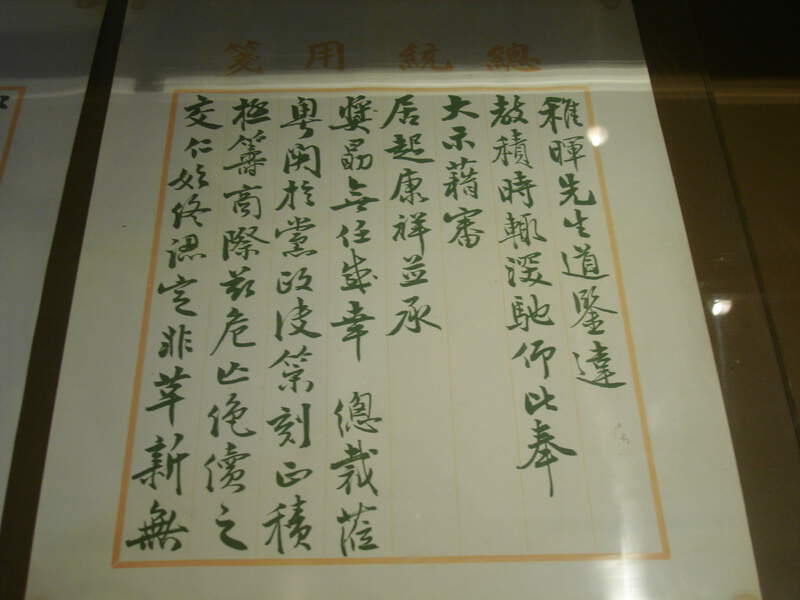 總統用箋
稚暉先生道鑒違
教積時輒深馳仰比奉
大示藉審
居起康祥並承
獎勗無任感幸 總裁蒞
粵關於黨政決策刻正積
極籌商際茲危亡絕續之
交仁始終認定非革新無